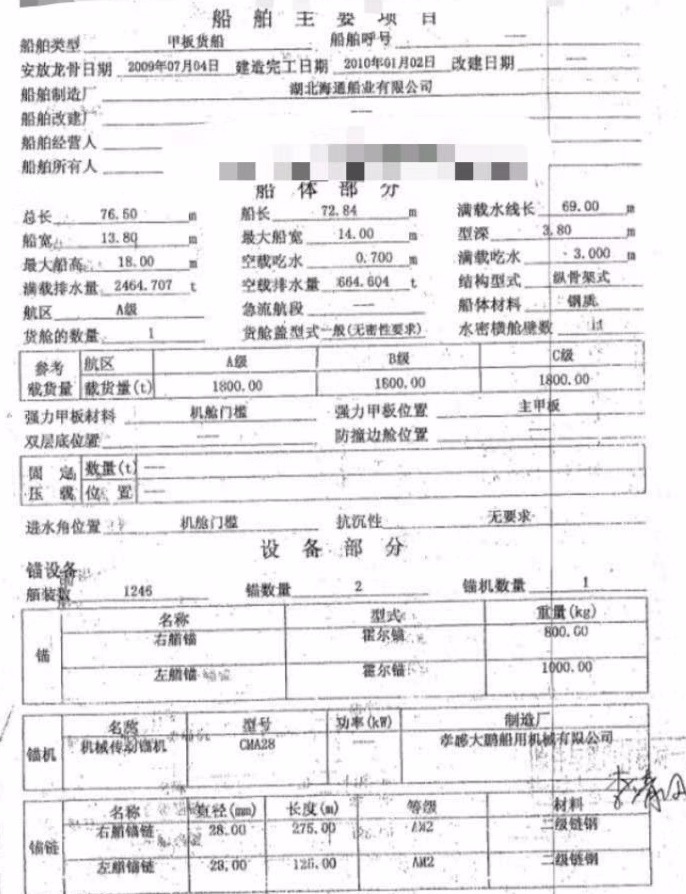 船舶主要项目
船舶类型 甲板货船 船舶呼号 ——
安放龙骨日期 2009年07月04日 建造完工日期 2010年01月02日 改建日期 ——
船舶制造厂 湖北海通船业有限公司
船舶改建厂 ——
船舶经营人
船舶所有人
船体部分
总长 76.50 m 船长 72.84 m 满载水线长 69.00 m
船宽 13.80 m 最大船宽 14.00 m 型深 3.80 m
最大船高 18.00 m 空载吃水 0.700 m 满载吃水 3.000 m
满载排水量 2464.707 t 空载排水量 664.604 t 结构型式 纵骨架式
航区 A级 急流航段 —— 船体材料 钢质
货舱的数量 1 货舱盖型式 一般(无密性要求) 水密横舱壁数 11
参考 航区 A级 B级 C级
载货量 载货量(t) 1800.00 1800.00 1800.00
强力甲板材料 机舱门槛 强力甲板位置 主甲板
双层底位置 —— 防撞边舱位置 ——
固定 数量(t) ——
压载 位置 ——
进水角位置 机舱门槛 抗沉性 无要求
设备部分
锚设备
舾装数 1246 锚数量 2 锚机数量 1
名称 型式 重量(kg)
锚 右艏锚 霍尔锚 800.00
左艏锚 霍尔锚 1000.00
名称 型号 功率(kW) 制造厂
锚机 机械传动锚机 CMA28 —— 孝感大鹏船用机械有限公司
名称 直径(mm) 长度(m) 等级 材料
锚链 右艏锚链 28.00 275.00 AM2 二级链钢
左艏锚链 28.00 125.00 AM2 二级链钢